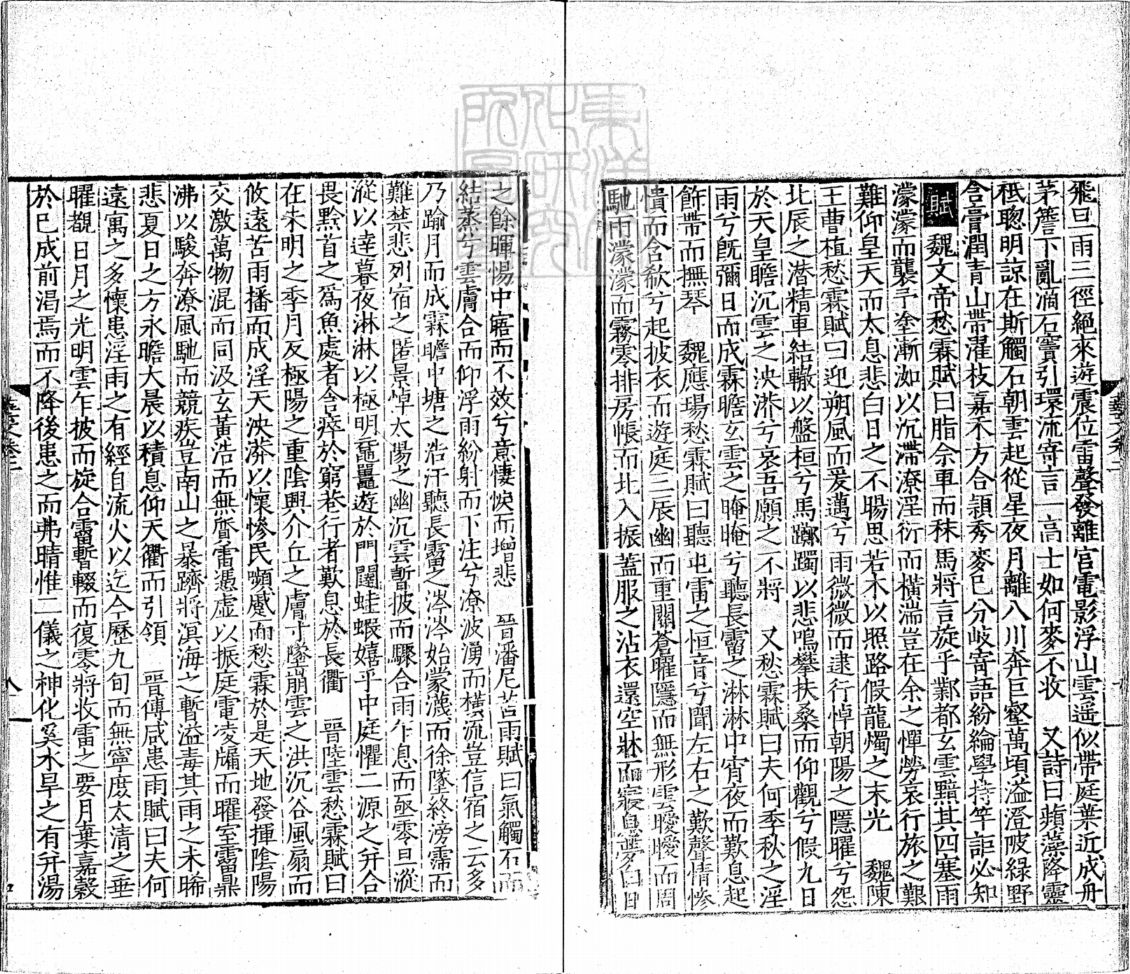 飛旦雨三徑絕來遊震位雷聲發離宮電影浮山雲遥似帶庭葉近成舟
茅簷下亂滴石竇引環流寄言一高士如何麥不收 又詩曰蘋藻降靈
祗聰明諒在斯觸石朝雲起從星夜月離八川奔巨壑萬頃溢澄陂綠野
含膏潤青山帶濯枝嘉禾方合頴秀麥已分岐寄語紛綸學持竿詎必知
賦 魏文帝愁霖賦曰脂余車而秣馬將言旋乎鄴都玄雲黯其四塞雨
濛濛而襲予塗漸洳以沉滯潦淫衍而橫湍豈在余之憚勞哀行旅之艱
難仰皇天而太息悲白日之不暘思若木以照路假龍燭之末光 魏陳
王曹植愁霖賦曰迎朔風而爰邁兮雨微微而逮行悼朝陽之隱曜兮怨
北辰之潛精車結轍以盤桓兮馬躑躅以悲鳴攀扶桑而仰觀兮假九日
於天皇瞻沉雲之泱漭兮哀吾願之不將 又愁霖賦曰夫何季秋之淫
雨兮旣彌日而成霖瞻玄雲之晻晻兮聽長霤之淋淋中宵夜而歎息起
餙帶而撫琴 魏應瑒愁霖賦曰聽屯雷之恒音兮聞左右之歎聲情慘
憒而含欷兮起披衣而遊庭三辰幽而重關蒼曜隱而無形雲曖曖而周
馳雨濛濛而霧零排房帳而北入振蓋服之沾衣還空牀而寢息夢白日
之餘暉惕中寤而不效兮意悽悷而增悲 晉潘尼苦雨賦曰氣觸石而
結蒸兮雲膚合而仰浮雨紛射而下注兮潦波湧而橫流豈信宿之云多
乃踰月而成霖瞻中塘之浩汗聽長霤之涔涔始蒙瀎而徐墜終滂霈而
難禁悲列宿之匿景悼太陽之幽沉雲暫披而驟合雨乍息而亟零旦漎
漎以達暮夜淋淋以極明黿鼉遊於門闥蛙蝦嬉乎中庭懼二源之并合
畏黔首之爲魚處者含瘁於窮巷行者歎息於長衢 晉陸雲愁霖賦曰
在朱明之季月反極陽之重陰興介丘之膚寸墜崩雲之洪沉谷風扇而
攸遠苦雨播而成淫天泱漭以懷慘民嚬蹙而愁霖於是天地發揮陰陽
交激萬物混而同汲玄黃浩而無質雷憑虛以振庭電凌牖而曜室霤鼎
沸以駿奔潦風馳而競疾豈南山之暴躋將溟海之暫溢毒其雨之未晞
悲夏日之方永瞻大晨以積息仰天衢而引領 晉傅咸患雨賦曰夫何
遠寓之多懷患淫雨之有經自流火以迄今歷九旬而無寧度太清之垂
曜覩日月之光明雲乍披而旋合霤暫輟而復零將收雷之要月棄嘉穀
於已成前渴焉而不降後患之而弗晴惟二儀之神化奚水旱之有并湯